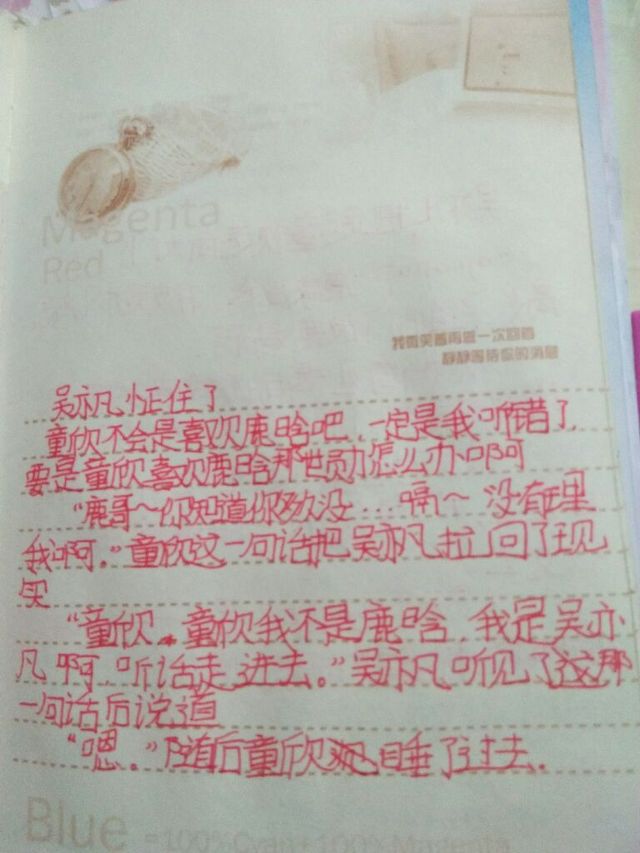 Magenta
Red
我微笑着再望一次回音
静静等待你的消息
吴亦凡怔住了
童欣不会是喜欢鹿晗吧,一定是我听错了,
要是童欣喜欢鹿晗那世勋怎么办啊
“鹿哥~你知道你多久没...嗝~没有理
我啊。”童欣这一句话把吴亦凡拉回了现
实
“童欣,童欣我不是鹿晗,我是吴亦
凡啊,听话走进去。”吴亦凡听见了这那
一句话后说道
“嗯。”随后童欣就睡了过去.
Blue =100%Cyan+100%Magenta